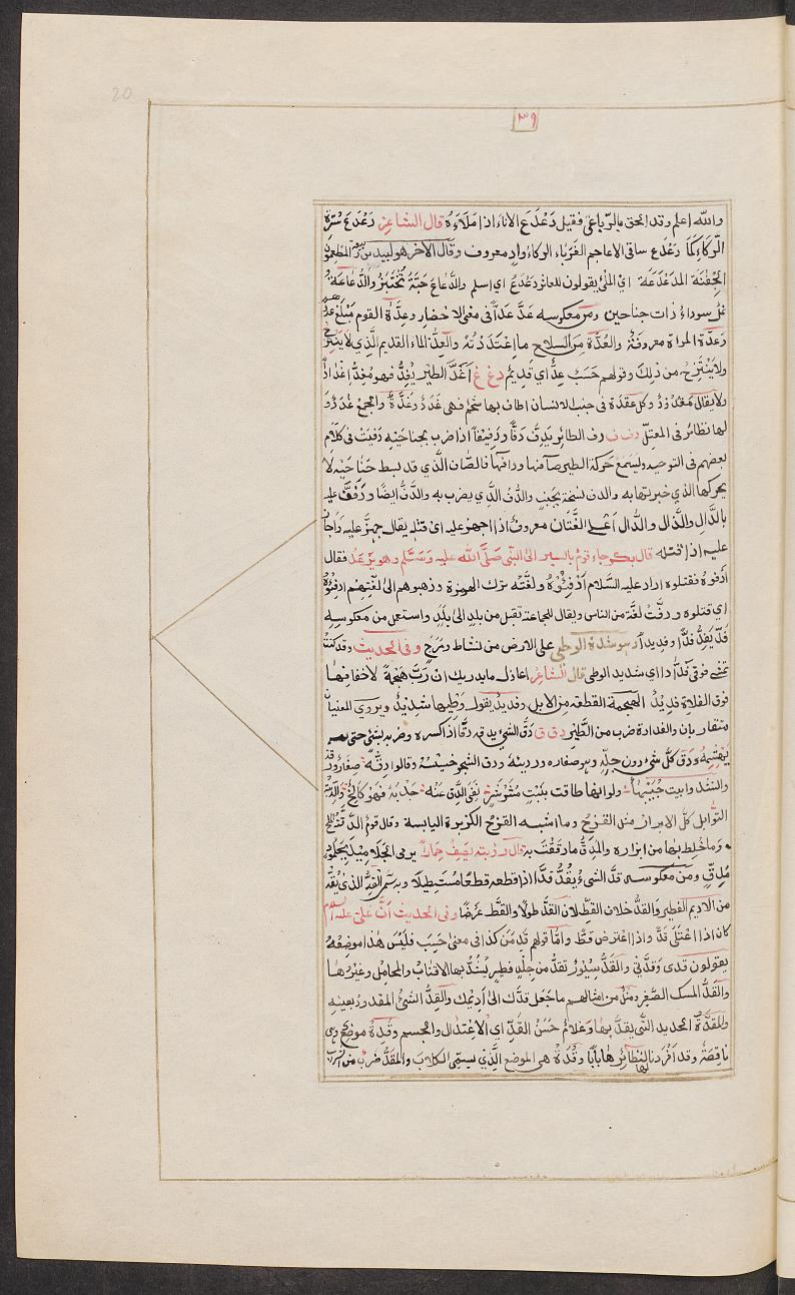 20
٣٩
والله اعلم وقد الحق بالرباعى فقيل دَعْدَعَ الاناء اذا مَلَاءَهُ قال الشاعر دَعْدَعَ سُرَّةَ
الرَّكَاءِ كَمَا دَعْدَع ساقى الاعاجم الغَرَبَاء الركاء وادٍ معروف وقال الآخر هو لبيد بن المطعمون
الجَفْنَة المدَعْدَعَة اى الملئى يقولون للعاثر دَعْدَعْ اى اسلم والدَّعاعَ حبّةٌ تُخْتَبَزُ والدُّعاعَة
نملٌ سوداءُ ذات جناحين ومن معكوسه عَدَّ عَدّاً فى معنى الاحصار وعِدَّةُ القوم مَبْلَغ
وعدّة المراة معروفةٌ والعُدَّةُ من السلاح ما اعْتَدَدْتَهُ والعِدُّ الماء القديم الَّذي لا يَنْتَزِحُ
من ذلك وقولهم حَسَبٌ عِدٌّ اى قديمٌ دغ غ اَغَدَّ الطير يُغِدُّ فهو مُغِدٌّ اغداداً
ولا يقال مَغْدُودٌ وكل عقدة فى جسد الانسان اطاف بها شحم فهى غَدَدٌ وغُدَّةٌ والجمع غُدَدٌ و
لها نظائر فى المعتلّ دف ف دف الطائر يَدِفّ دَفّاً ودَفِيفاً اذا ضرب بجناحَيْه دَفيَّت فى كلام
بعضهم فى التوحيد وليسمع حَركة الطير صافّها ودافّها فالصّافّ الَّذي قد بسط جَناحَيْه لَا
يحركها والدف الَّذي يضرب به والدُّفّ ايضًا
بالدَّال والذَّال والدّال اعْلى اللُّغَتَانِ معروف اذا اجهز عليه اى قتله يقال جهزَ عليه
عليه اذا قتله قال جاء قوم باسير الى النّبى صَلَّى الله عليه وَسَلَّم وهو يرعد فقال
اَدْفُوهُ فقتلوه اراد عليه السَّلام اَدْفِئُوْهُ ولغَتُه ترك الهمزة وذهبوهم الى لُغَتِهِم
اى قتلوه و دفَّتْ من الناس ويقال للجماعة تقبل من بلدٍ الى بلَدٍ واستعمل من معكوسه
فَدَّ يَفِدُّ فَدّاً وفديداً وهو شدة الوطىِٔ على الارض من نشاط ومَرَحٍ وفى الحديث وقد كنتُ
تمشى فوقى فَدّاداً اى شديد الوطى قال الشاعر اعاذل ما يدريك ان رُبَّ هَجْمَةٍ لاخفافها
فوق الفلاة فديدُ الهجمة القطعة من الابل وفديدُ يقول وطيها شديدٌ ويروى المعنيان
متقاربان والفدادة ضرب من الطَّير دق ق دَقَّ الشىءَ يدقه دقّا اذا كسره وضربه بشىءٍ حتى
يهشمه ودق كلّ شىءٍ دون جِلّه وهو صغاره ورديئه ودق الشجر خسيسه وقالوا دقّه صغاره
وانشد وابيت طافت بنبت نفى الدّقّ عنه جَدْبُهُ فهو كالحٌ
التوابل كلّ الابزار مثل القزح وما اشبهه القزح الكزبرة اليابسة وقال قوم الدقّة
وما خلط بها من ابزاره والمِدَقُّ ما دقَقْتَ به قال رؤبة يصف حمارا يرمى الجلاميد بجلمودٍ
مِدَقّ ومن معكوسه قدَّ الشىءَ يقُدُّ قَدًّا اذا قطعه قطعا مُستطيلا وبه سمى القِدُّ الذى يُقَدُّ
من الاديم الفطير والقَدُّ خلاف القطّ لان القَدَّ طولًا والقَطَّ عَرْضًا وفى الحديث اَنَّ علىٍّ عليه السلام
كان اذا اعْتَلَى قدَّ واذا اعترض قَطّ وامَّا قولهم قَدْ مَنْ كذا فى معنى حَسَب فلَيْسَ هذا موضعهُ
يقولون قدى وقَدْنى والقَدُّ سيُورٌ تقدّ من جلدٍ فطيرٍ يُشَدُّ بها الاقتاب والمحامل وغَيْرها
والقَدُّ المسك الصَّغير ومثل من امثالهم ما جَعَل قدّك الى اديمك والقِدُّ الشىءُ المقدود بعينه
والمقدَّةُ الحديد الَّتى يقدّ بها وغلام حَسَن القَدِّ اى الاِعْتدال والجسم وقُدَةُ موضعٌ وهى
ناقِصَةٌ وقد اَفْرَدنا للنظائر لها بابًا وقُدَةُ هى الموضع الَّذي يسمّى الكلاب والمقَدُّ ضربٌ من الشراب